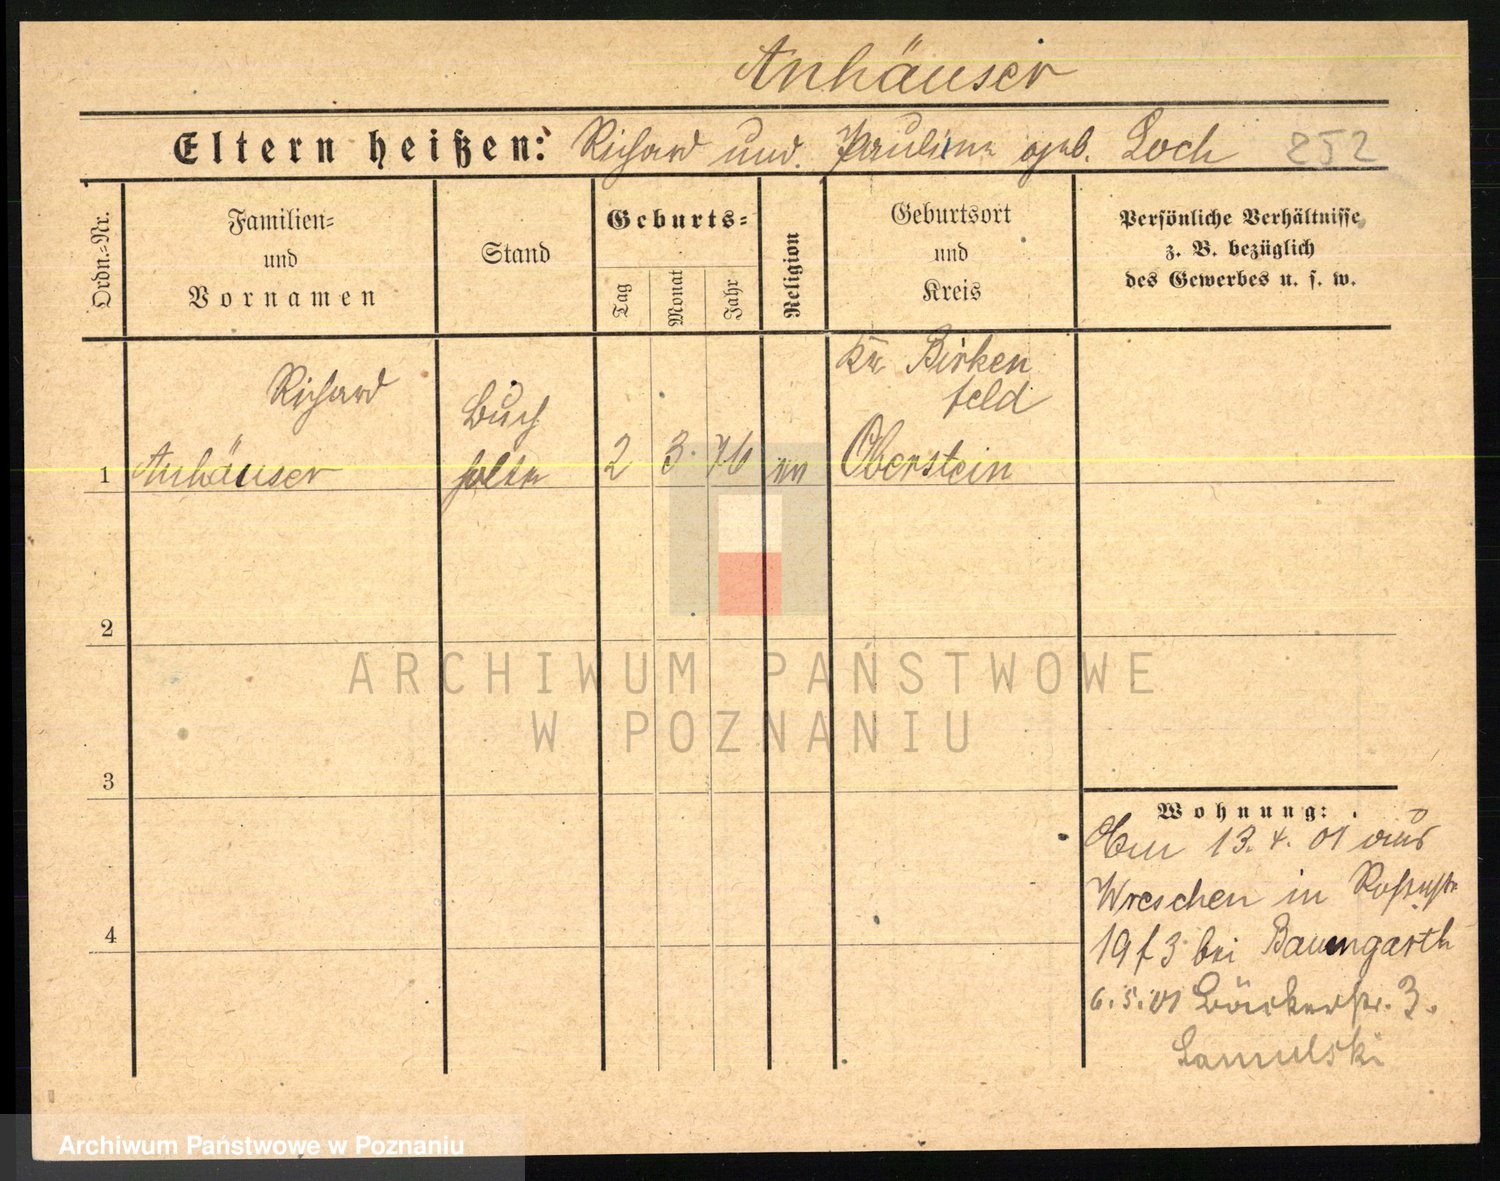 Anhäuser
Eltern heißen: Richard und Pauline geb. Loch 252
Ordn.-Nr.
Familien-
und
Vornamen
Stand
Geburts-
Tag
Monat
Jahr
Religion
Geburtsort
und
Kreis
Persönliche Verhältnisse
z. B. bezüglich
des Gewerbes u. s. w.
Kr Birken
feld
Richard
Buch
1 Anhäuser 2 3. 76 Oberstein
2
3
4
Wohnung:
13. 4. 01 aus
Wreschen in
19 f 3 bei Baumgarth
6. 5. 01 Bäckerstr. 3.
ARCHIWUM PAŃSTWOWE
W POZNANIU
Archiwum Państwowe w Poznaniu